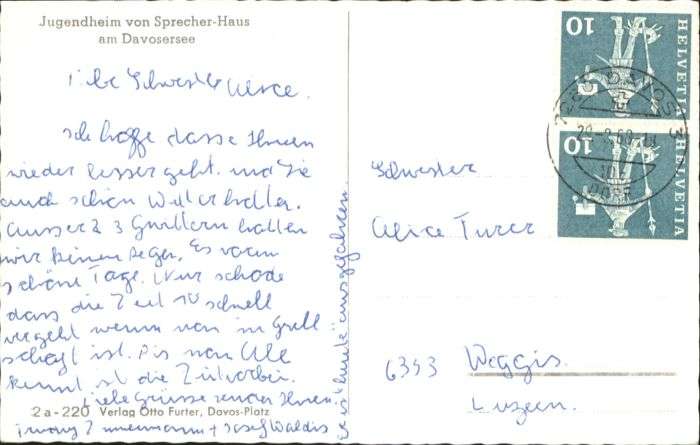 Jugendheim von Sprecher-Haus
am Davosersee
Liebe Schwester
Ich hoffe dass es Ihnen
wieder besser geht. und Sie
auch schön Wetter hatten.
Ausser 2 3 Gwittern hatten
wir keinen Regen. Es waren
schöne Tage. Nur schade
dass die Zeit so schnell
vergeht wenn man im
ist. Bis man Alle
kennt ist die Zeit vorbei.
Liebe Grüsse senden Ihnen
2a-220 Verlag Otto Furter, Davos-Platz
+ Josef Waldis
HELVETIA
10
HELVETIA
10
Schwester
Alice Turer
6353 Weggis.
Luzern.